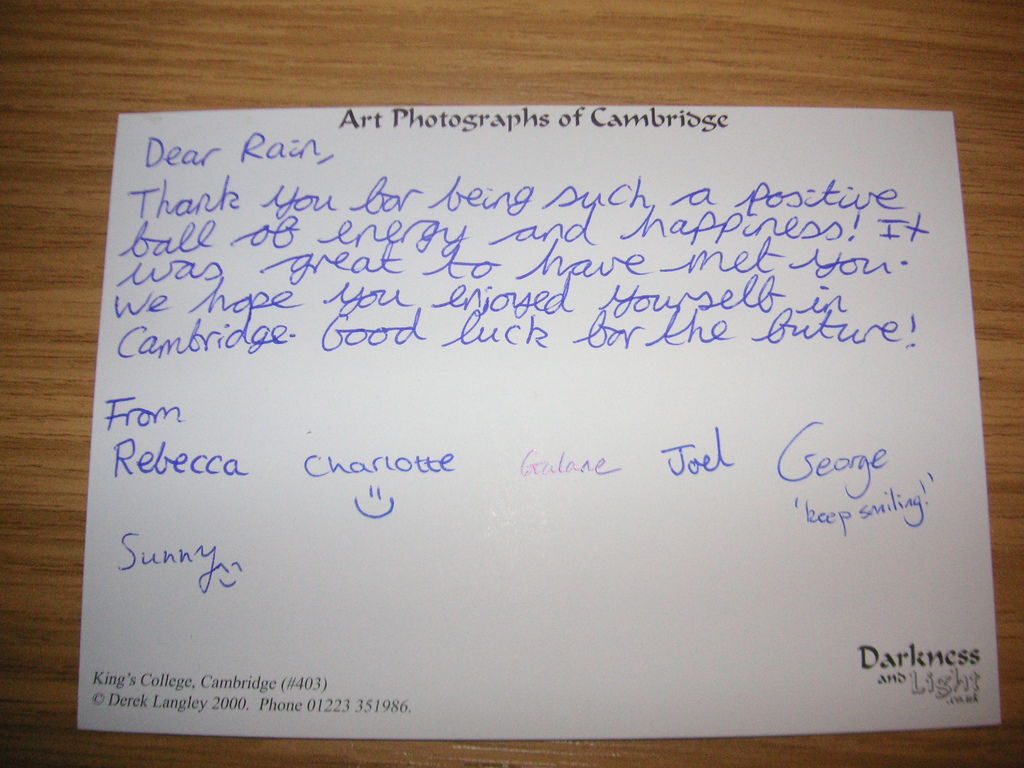 Art Photographs of Cambridge
Dear Rain,
Thank you for being such a positive
ball of energy and happiness! It
was great to have met you.
We hope you enjoyed yourself in
Cambridge. Good luck for the future!
From
Rebecca Charlotte Galane Joel George
'keep smiling!'
Sunny
Darkness
and Light
.co.uk
King's College, Cambridge (#403)
© Derek Langley 2000. Phone 01223 351986.